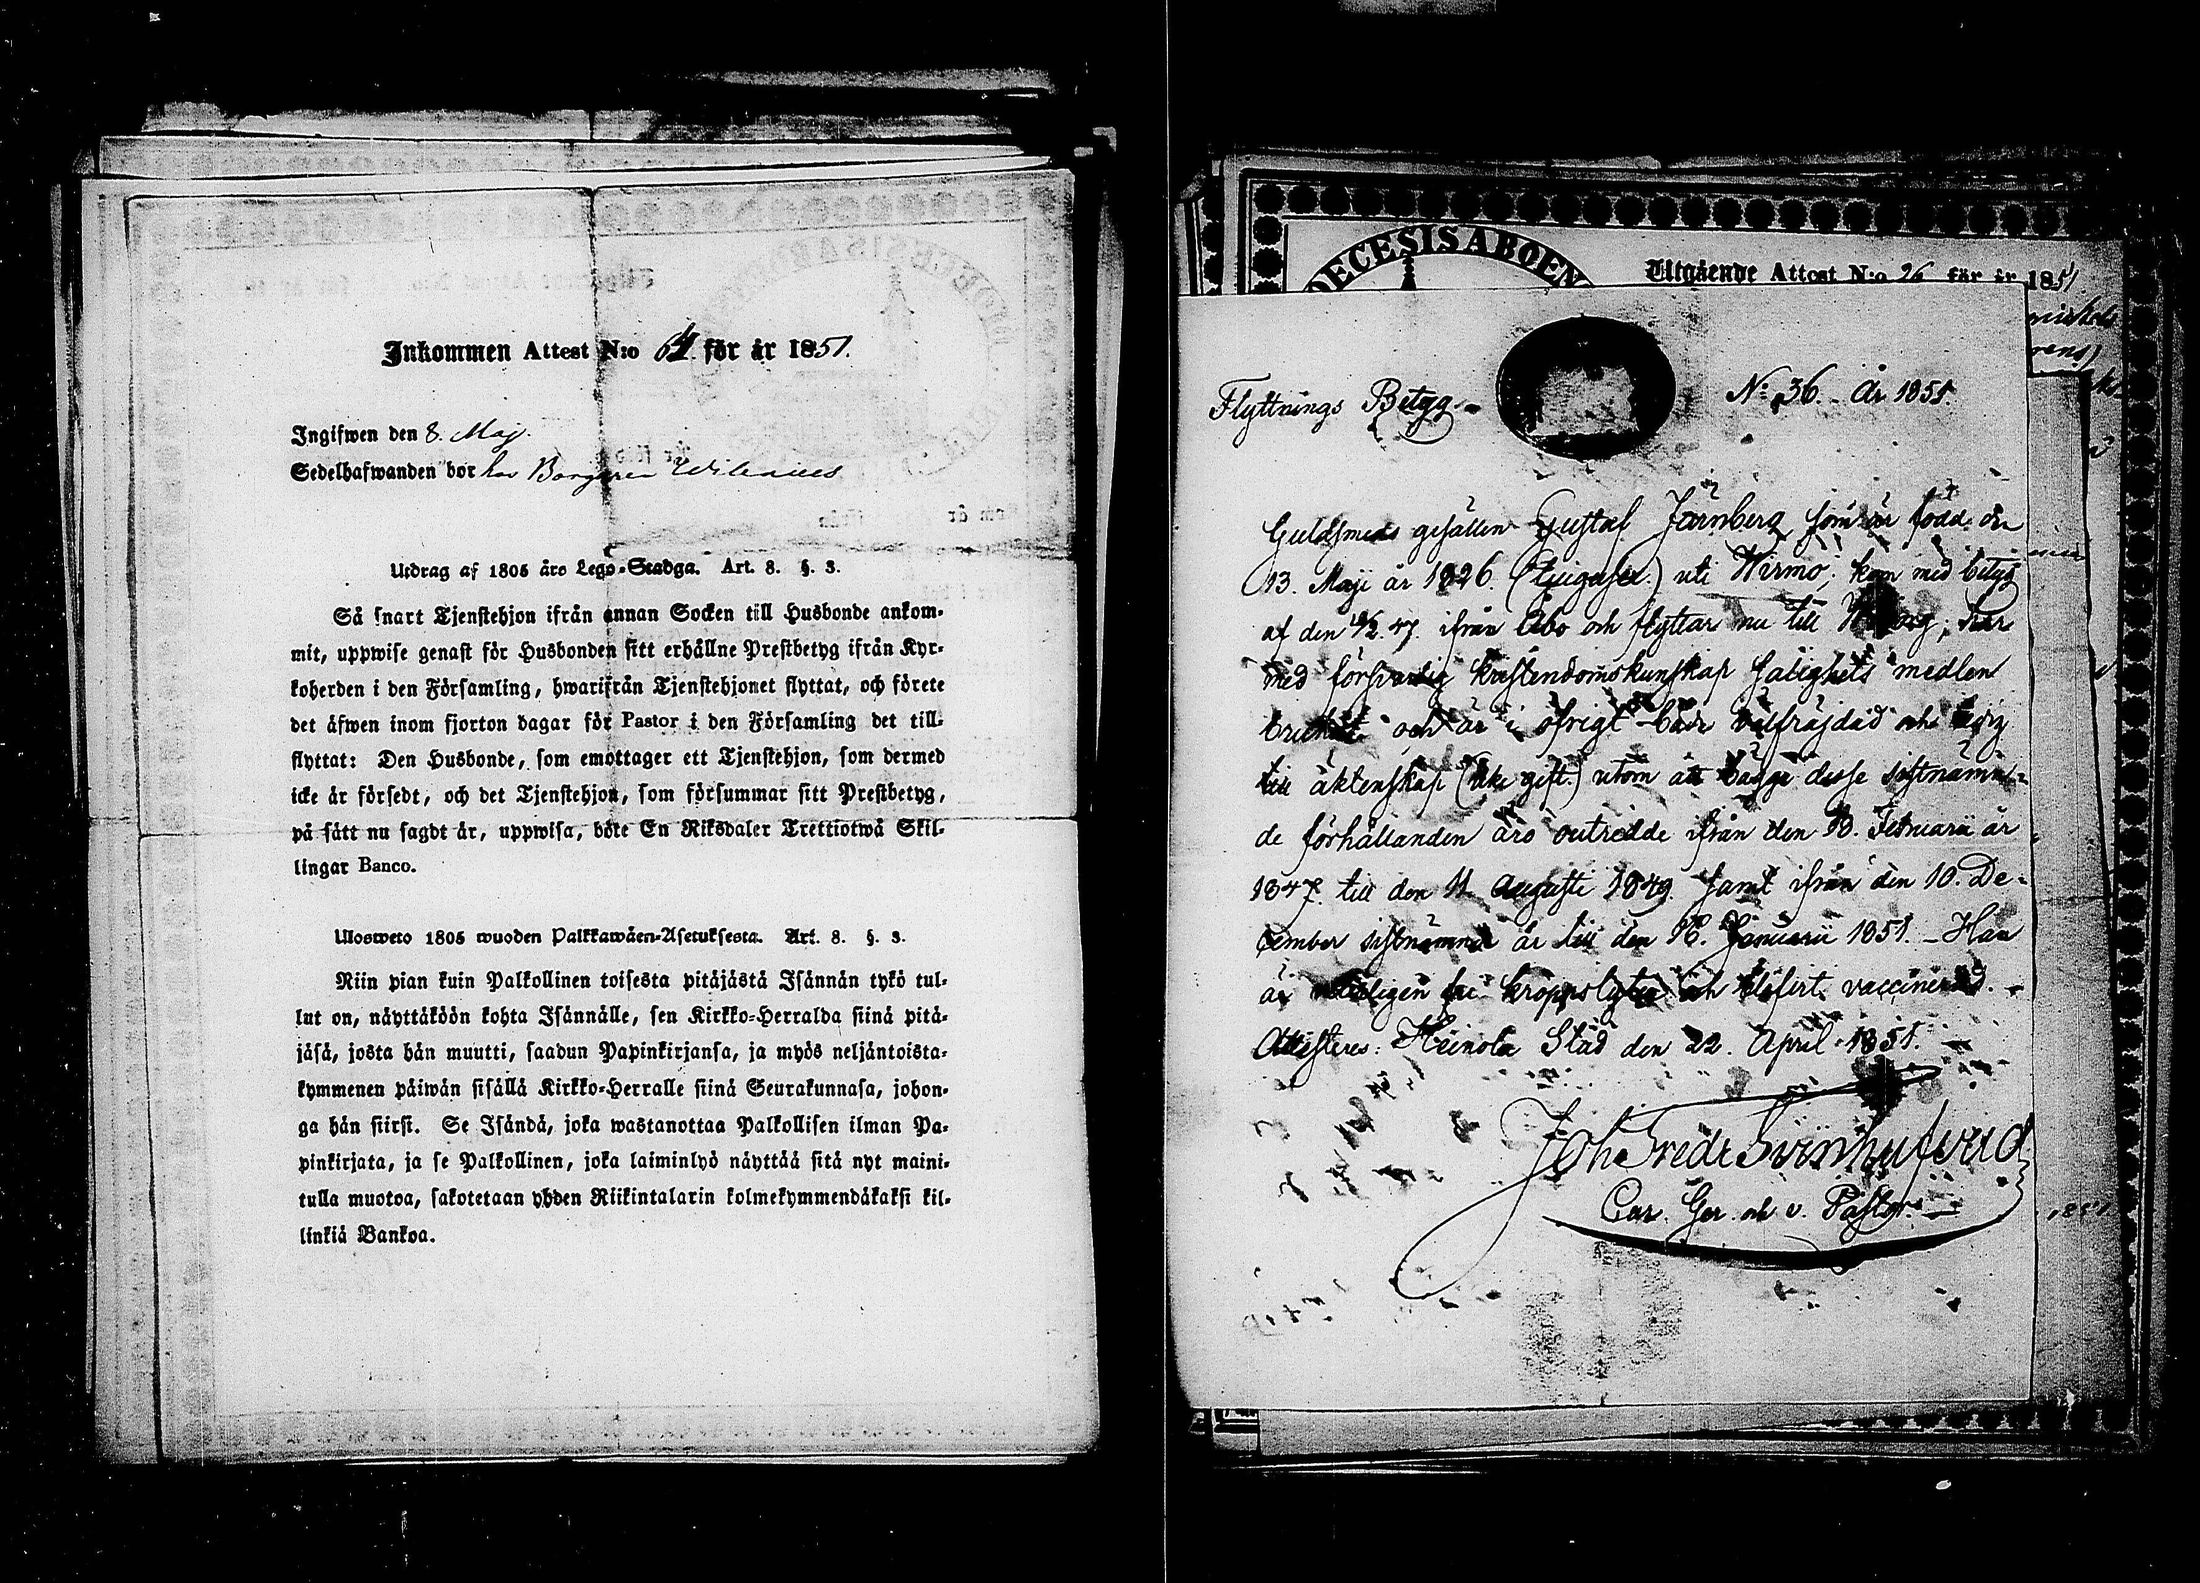 Inkommen Attest N:o 64 för år 1851.
Ingifwen den 8. Maj.
Sedelhafwanden bor hos Borgaren Wilenius
Utdrag af 1805 års Lego-Stadga. Art. 8. §. 3.
Så snart Tjenstehjon ifrån annan Socken till Husbonde ankom-
mit, uppwise genast för Husbonden sitt erhållne Prestbetyg ifrån Kyr-
koherden i den Församling, hwarifrån Tjenstehjonet flyttat, och förete
det äfwen inom fjorton dagar för Pastor i den Församling det till-
flyttat: Den Husbonde, som emottager ett Tjenstehjon, som dermed
icke är försedt, och det Tjenstehjon, som försummar sitt Prestbetyg,
på sätt nu sagdt är, uppwisa, böte En Riksdaler Trettiotwå Skil-
lingar Banco.
Ulosweto 1805 wuoden Palkkawäen-Asetuksesta. Art. 8. §. 3.
Niin pian kuin Palkollinen toisesta pitäjästä Isännän tykö tul-
lut on, näyttäköön kohta Isännälle, sen Kirkko-Herralda siinä pitä-
jäsä, josta hän muutti, saadun Papinkirjansa, ja myös neljäntoista-
kymmenen päiwän sisällä Kirkko-Herralle siinä Seurakunnasa, johon-
ga hän siirsi. Se Isändä, joka wastanottaa Palkollisen ilman Pa-
pinkirjata, ja se Palkollinen, joka laiminlyö näyttää sitä nyt maini-
tulla muotoa, sakotetaan yhden Riikintalarin kolmekymmendäkaksi kil-
linkiä Bankoa.
DECESIS ABOEN
Utgående Attest N:o 26 för år 1851
Flyttnings Betyg. N: 36. År 1851.
Guldsmeds gesällen Gustaf Järnberg som är född den
13. Maji år 1826. uti Wirmo; kom med betyg
af den 47. ifrån Åbo och flyttar nu till har
med försvarlig kristendomskunskap salighets medlen
brukat och är i öfrigt både välfräjdad och ledig
till äktenskap (icke gift.) utom att bägge desse sistnämn-
de förhållanden äro outredde ifrån den 13. Februarii år
1847. till den 11 Augusti 1849. samt ifrån den 10. De-
cember sistnämnda år till den 16. Januarii 1851. - Han
är fri kroppslyten och vaccinerad.
Attesteres: Heinola Stad den 22. April 1851.
Joh Fredr Svinhufvud
och v. Pastor.